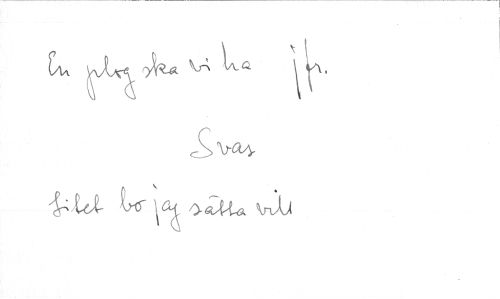 En plog ska vi ha jfr.
Svas
litet bo jag sätta vill